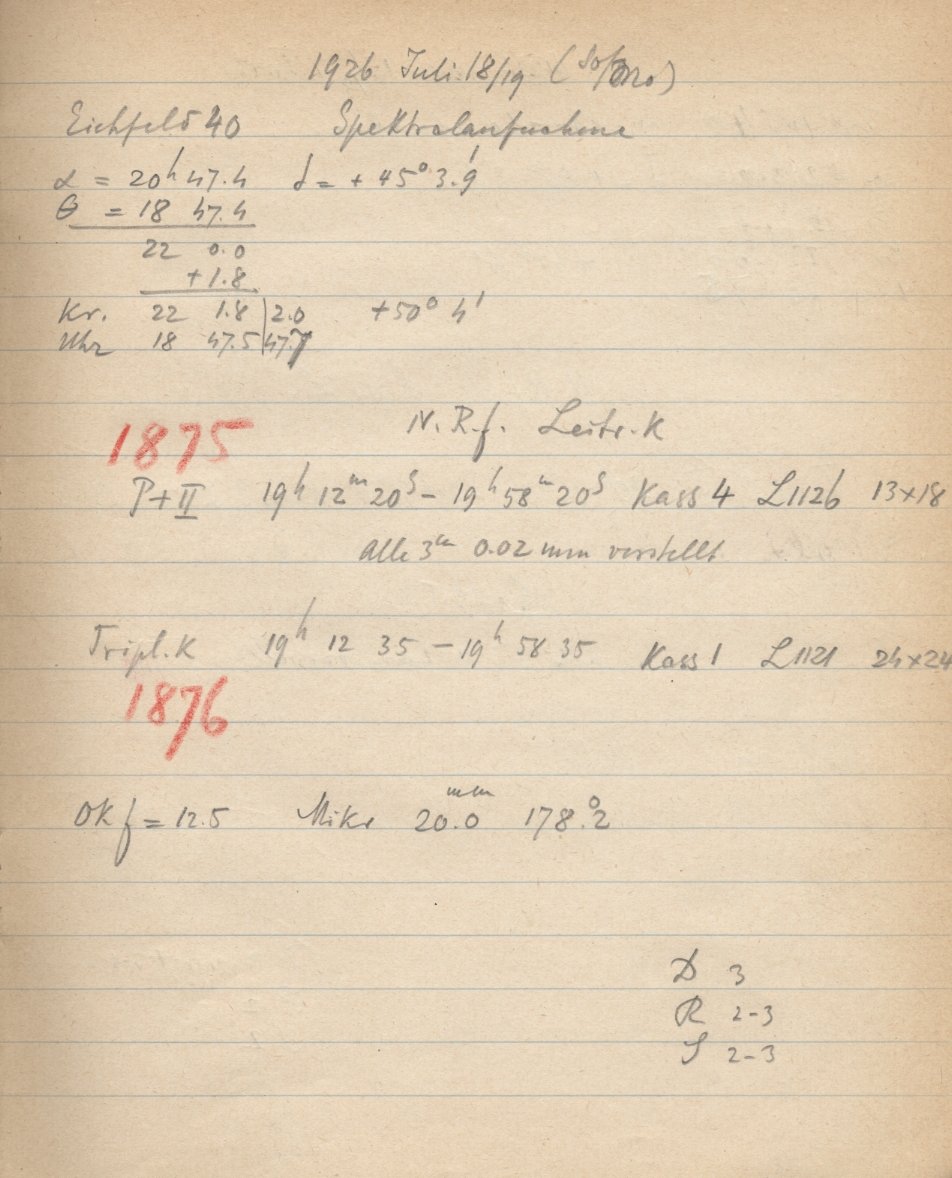 1926 Juli 18/19
Eichfeld 40 Spektralaufnahme
α = 20h 47.4 δ = + 45° 3.9'
θ = 18 47.4
22 0.0
+1.8
Kr. 22 1.8 | 2.0 +50° 4'
Uhr 18 47.5 | 47.7
1875
N. R. f. Leitr. K
P+II 19h 12m 20s – 19h 58m 20s Kass 4 L1126 13×18
alle 3m 0.02 mm verstellt
Tripl. K 19h 12 35 – 19h 58 35 Kass 1 L1121 24×24
1876
OK f = 12.5 Mikr 20.0 mm 178.°2
D 3
R 2-3
S 2-3